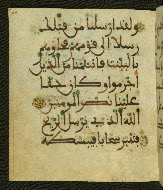 ولقد ارسلنا من قبلك
رسلا الى قومهم فجاوهم
بالبينت فانتقمنا من الذين
اجرموا وكان حقا
علينا نصر المومنين
الله الذي يرسل الريح
فتثير سحابا فيبسطه